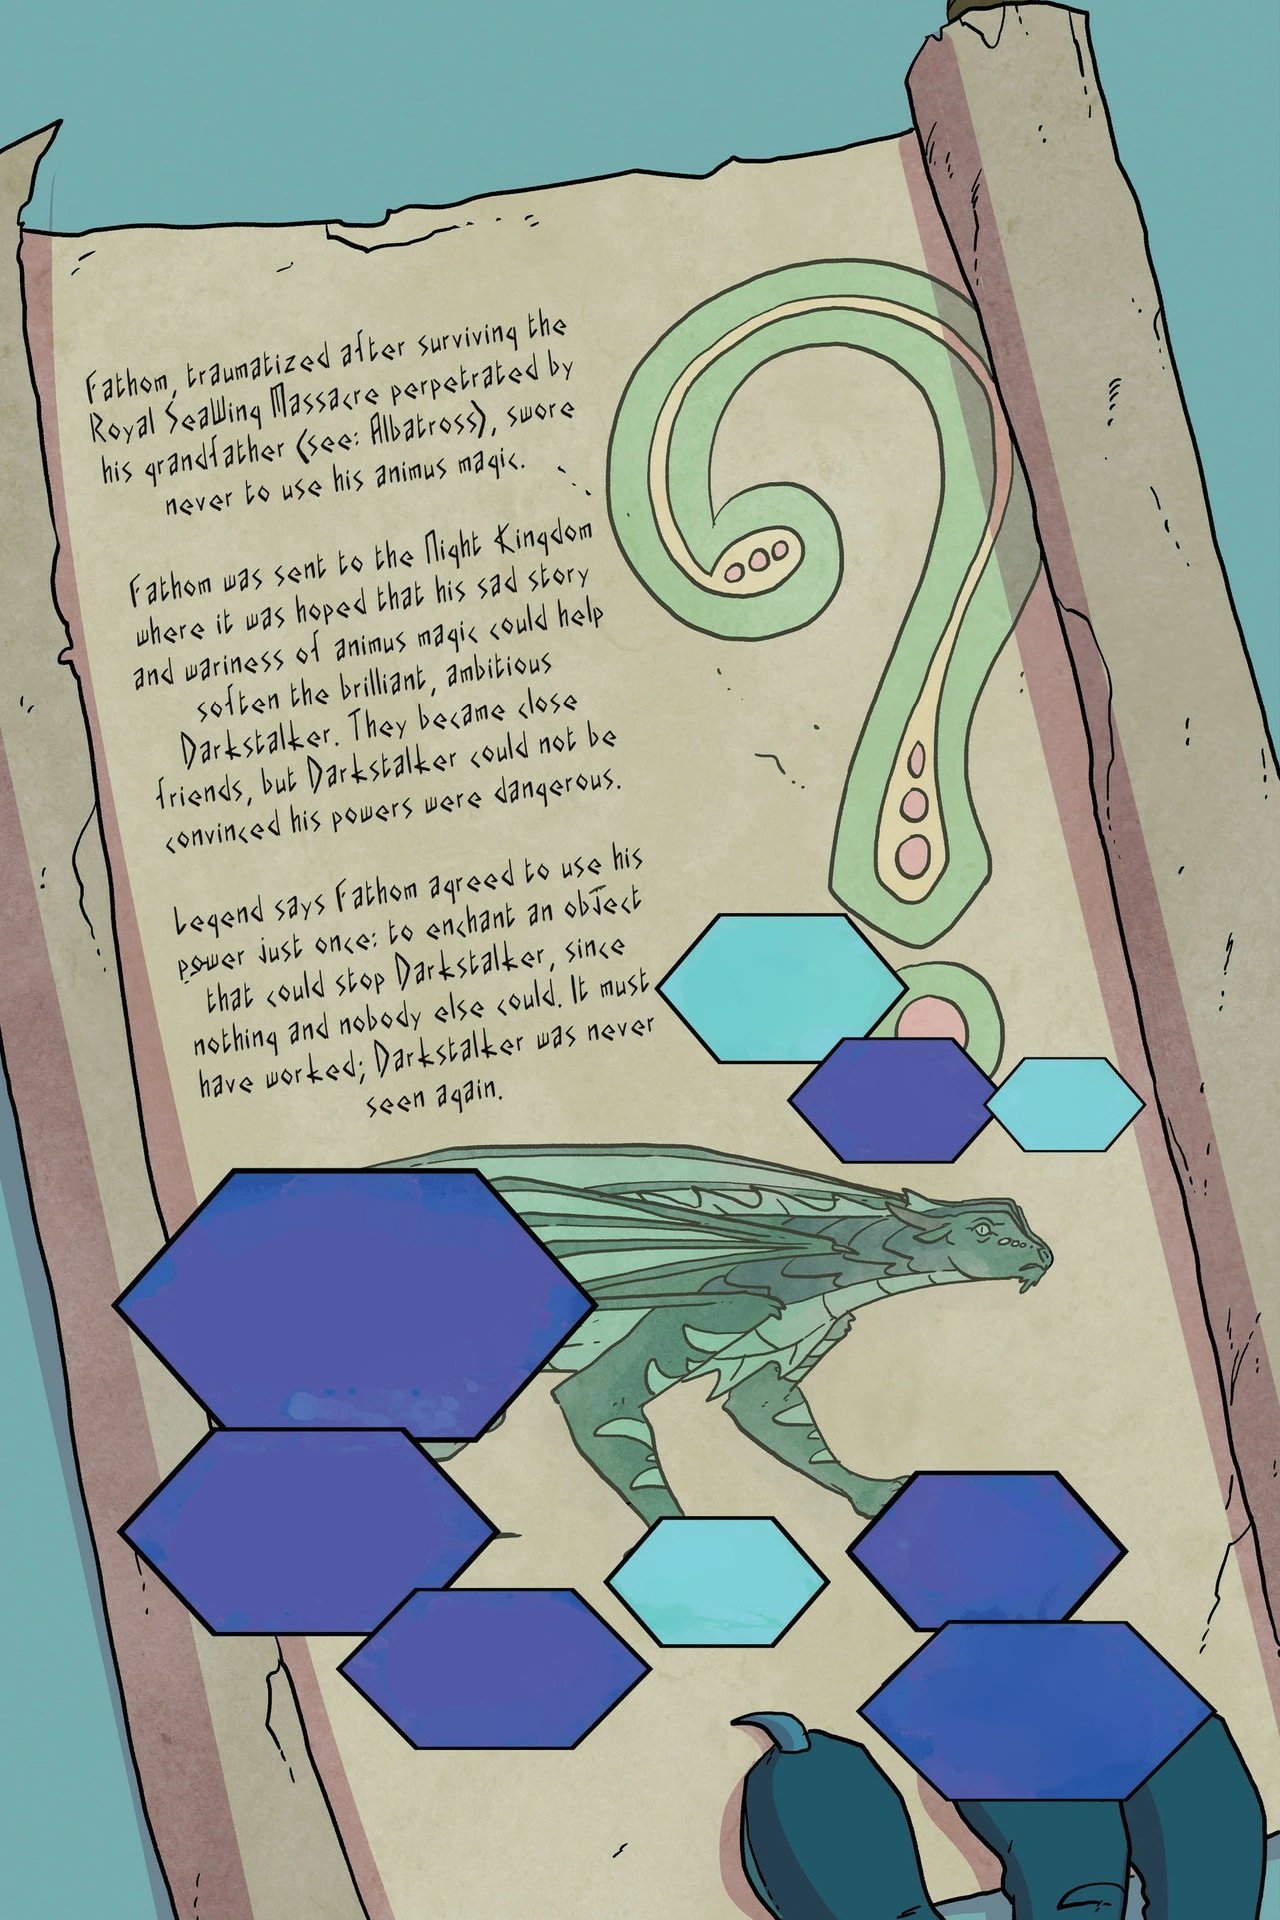 Fathom, traumatized after surviving the
Royal SeaWing Massacre perpetrated by
his grandfather (see: Albatross), swore
never to use his animus magic.
Fathom was sent to the Night Kingdom
where it was hoped that his sad story
and wariness of animus magic could help
soften the brilliant, ambitious
Darkstalker. They became close
friends, but Darkstalker could not be
convinced his powers were dangerous.
Legend says Fathom agreed to use his
power just once: to enchant an object
that could stop Darkstalker, since
nothing and nobody else could. It must
have worked; Darkstalker was never
seen again.